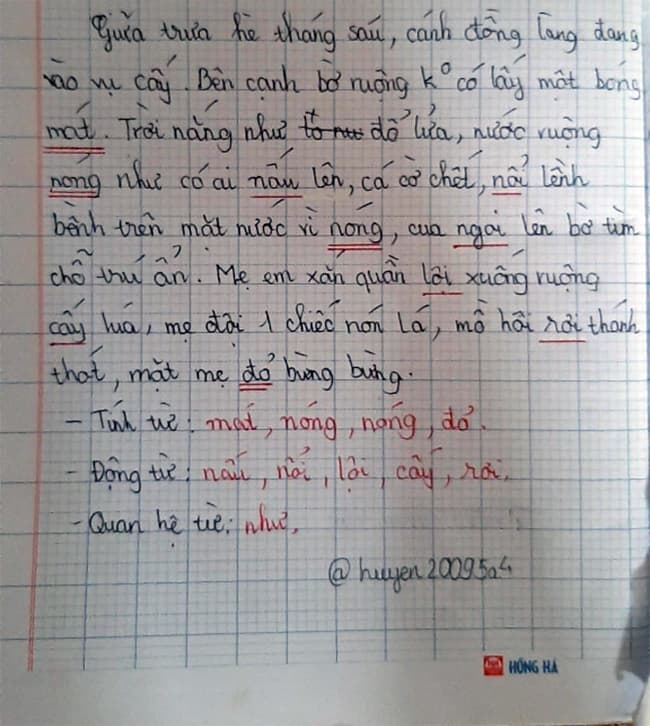 Giữa trưa hè tháng sáu, cánh đồng làng đang
vào vụ cấy. Bên cạnh bờ ruộng k° có lấy một bóng
mát. Trời nắng như đổ lửa, nước ruộng
nóng như có ai nấu lên, cá cờ chết, nổi lềnh
bềnh trên mặt nước vì nóng, cua ngoi lên bờ tìm
chỗ trú ẩn. Mẹ em xắn quần lội xuống ruộng
cấy lúa, mẹ đội 1 chiếc nón lá, mồ hôi rơi thánh
thót, mặt mẹ đỏ bừng bừng.
- Tính từ: mát, nóng, nóng, đỏ.
- Động từ: nấu, nổi, lội, cấy, rơi.
- Quan hệ từ: như,
@huyen20095a4
HỒNG HÀ